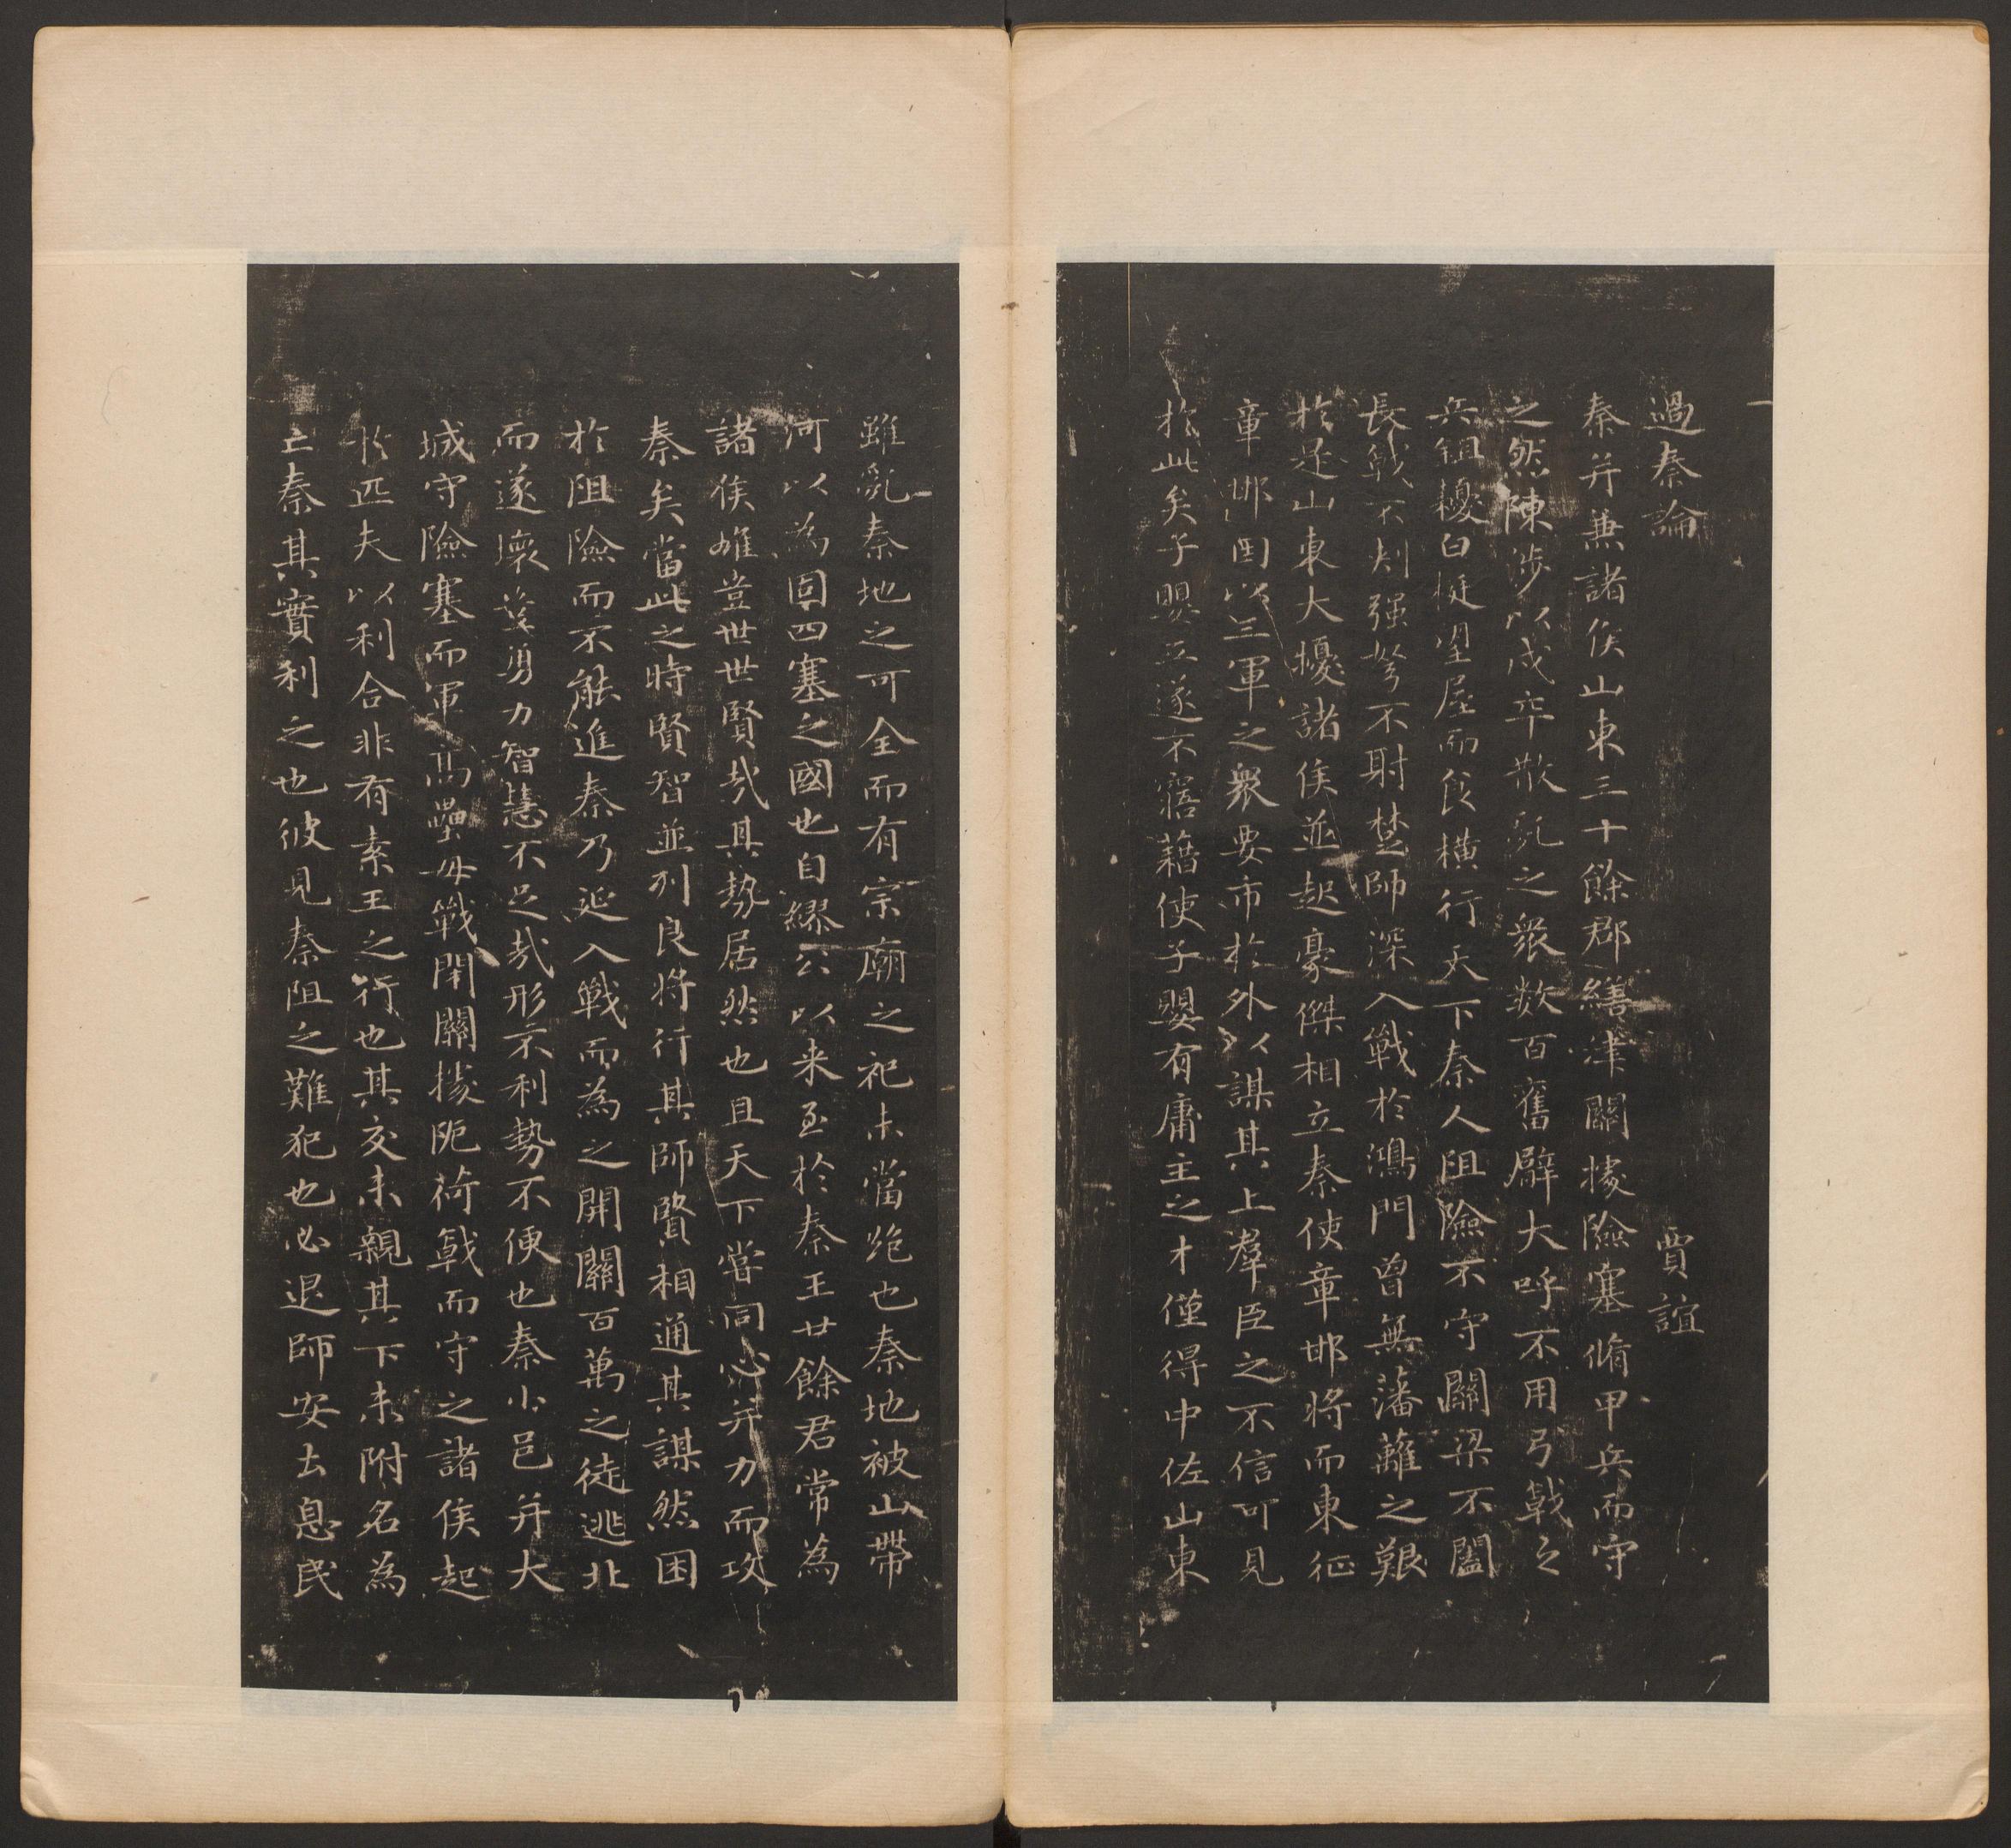 過秦論 賈誼
秦并兼諸侯山東三十餘郡繕津關據險塞脩甲兵而守
之然陳涉以戍卒散亂之衆數百奮臂大呼不用弓戟之
兵鉏耰白梃望屋而食橫行天下秦人阻險不守關梁不闔
長戟不刺强弩不射楚師深入戰於鴻門曾無藩蘺之艱
於是山東大擾諸侯並起豪傑相立秦使章邯將而東征
章邯因以三軍之衆要市於外以謀其上羣臣之不信可見
於此矣子嬰立遂不寤藉使子嬰有庸主之才僅得中佐山東
雖亂秦地之可全而有宗廟之祀未當絶也秦地被山帶
河以為固四塞之國也自繆公以来至於秦王廿餘君常為
諸侯雄豈世世賢哉其勢居然也且天下嘗同心并力而攻
秦矣當此之時賢智並列良將行其師賢相通其謀然困
於阻險而不能進秦乃延入戰而為之開關百萬之徒逃北
而遂壞豈勇力智慧不足哉形不利勢不便也秦小邑并大
城守險塞而軍高壘毋戰閉關據阨荷戟而守之諸侯起
於匹夫以利合非有素王之行也其交未親其下未附名為
亡秦其實利之也彼見秦阻之難犯也必退師安土息民